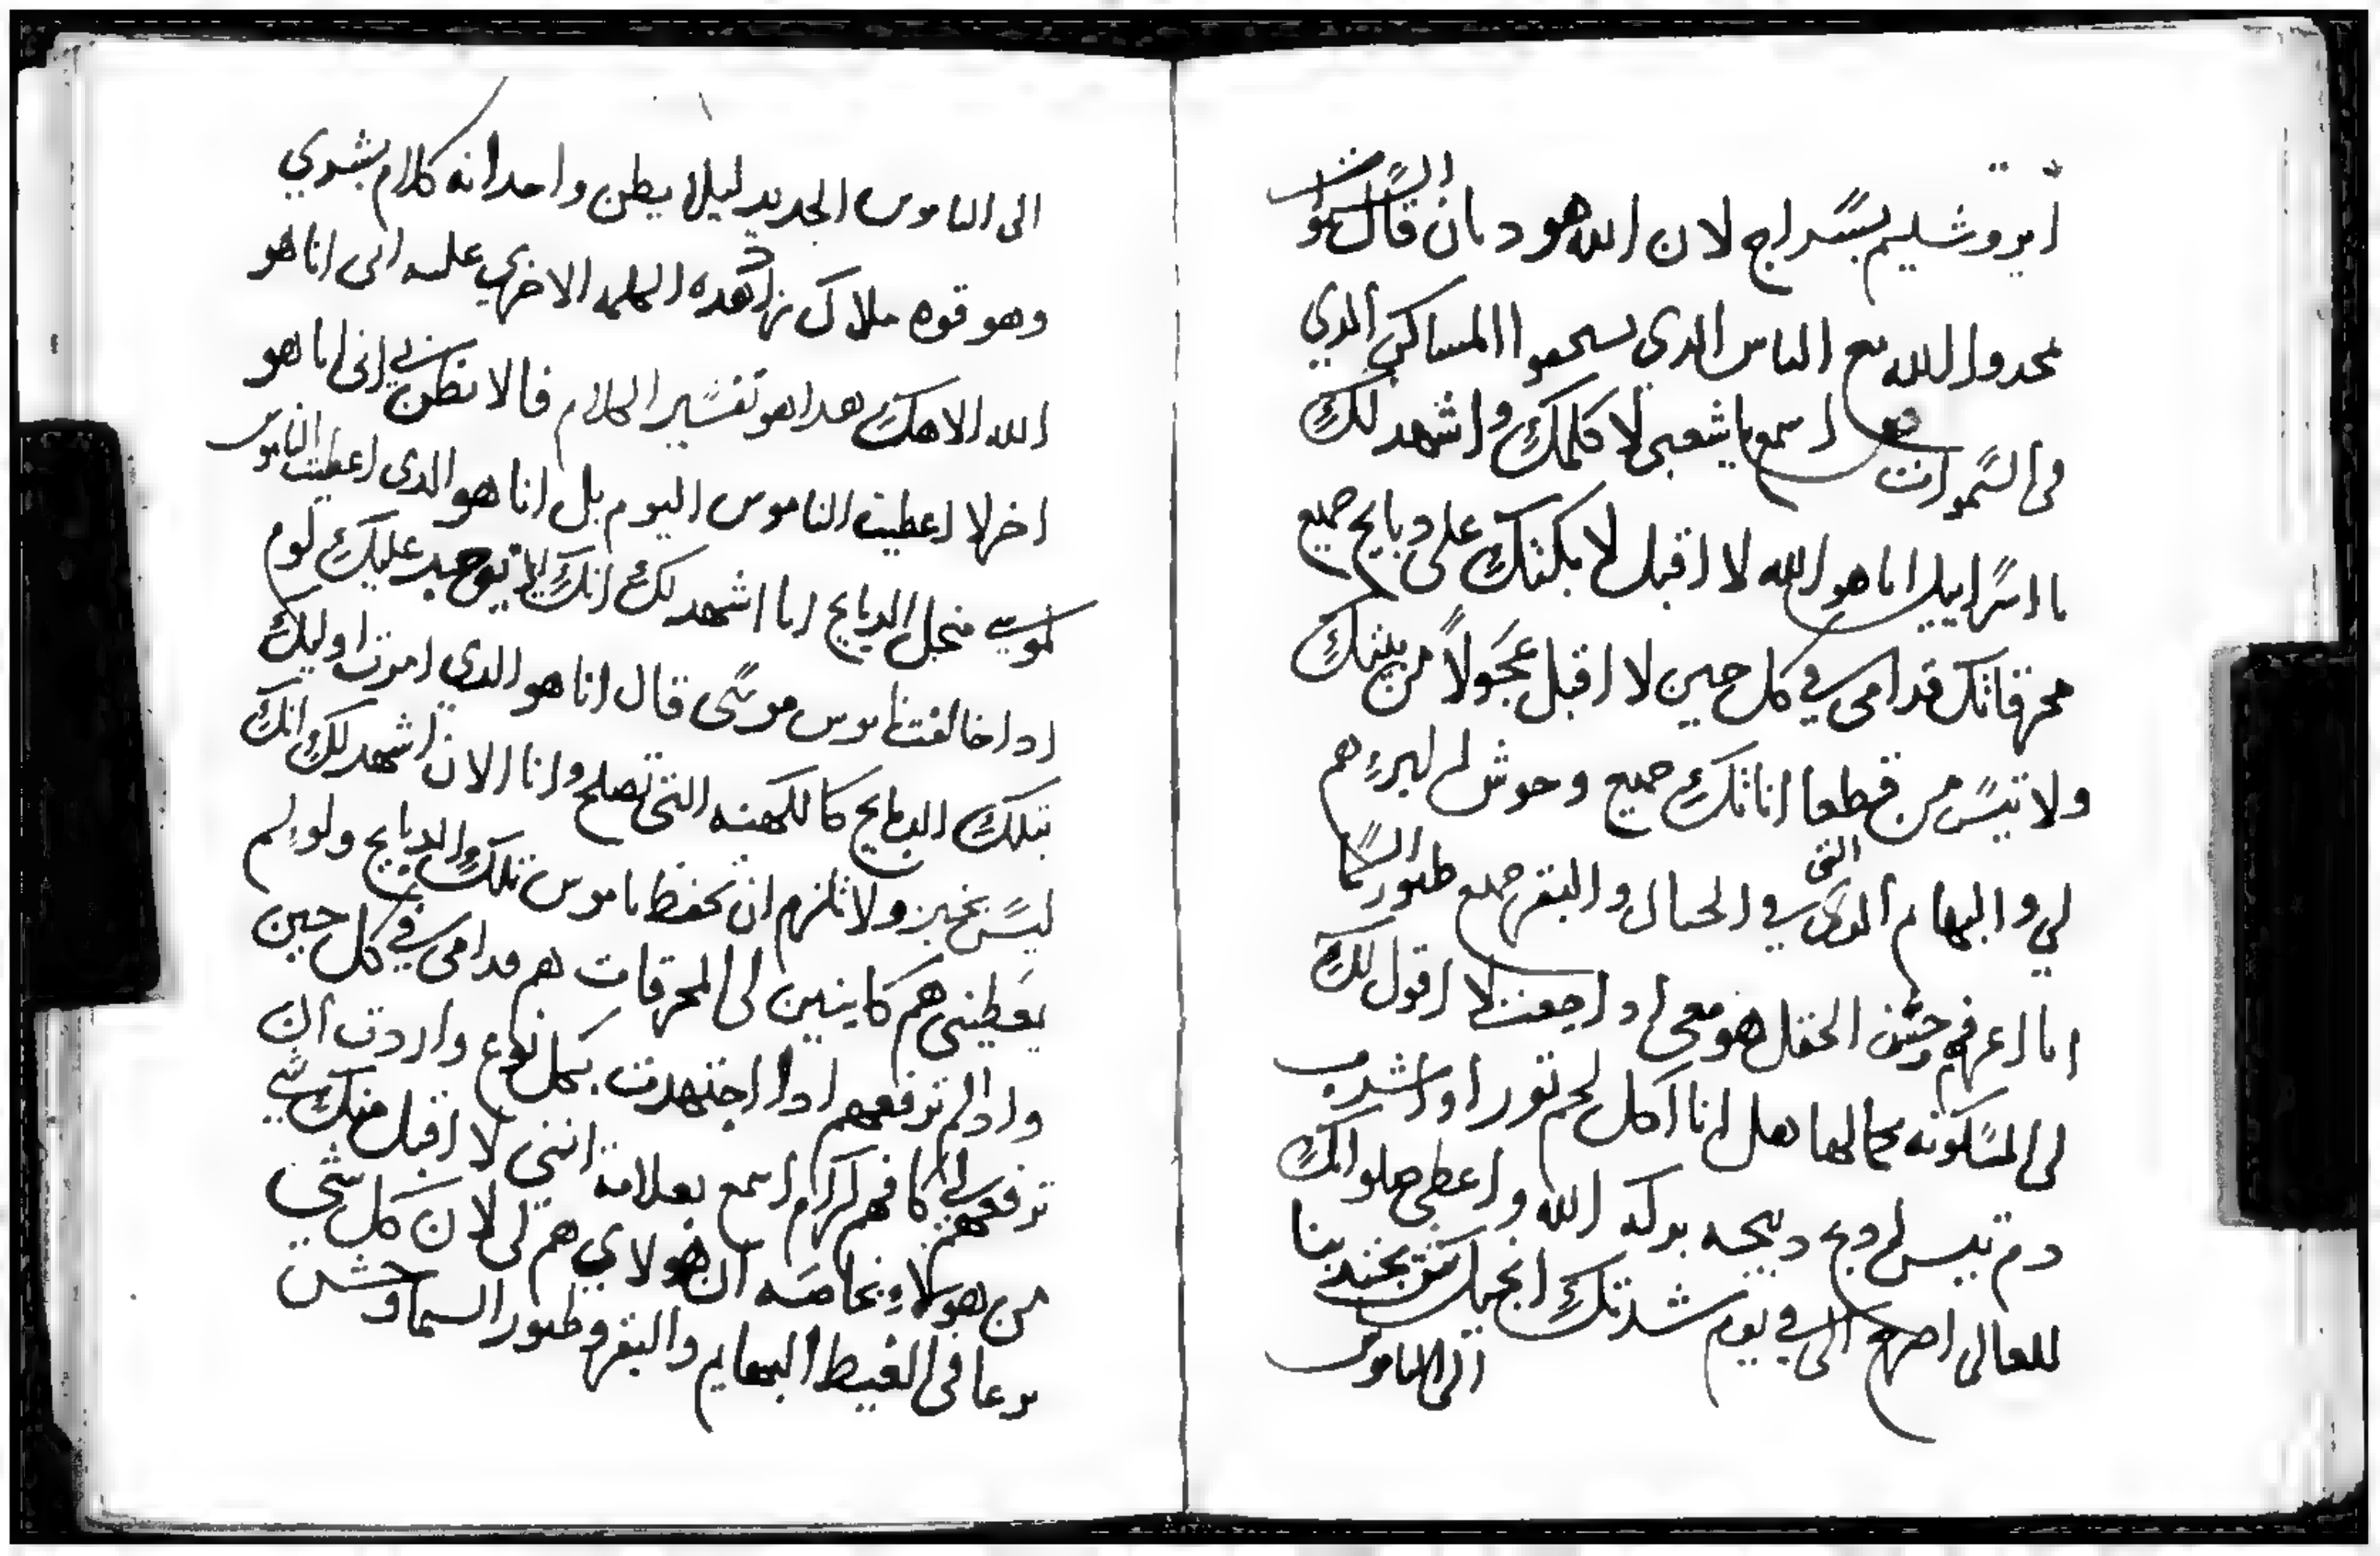 أيروشليم بسراج لان الله هو ديان قال هو
نحدوا لله مع الناس الدى المساكن الدي
فى السموات هو اسمع يا شعبى لا كلمك واشهد لك
يا اسراييل انا هو الله لا اقبل لا بكتك على دبايح جميع
محرقاتك قدامى في كل حين لا اقبل عجولاً من بيتك
ولا تيس من قطعا اناتك جميع وحوش لم لبرهم
لي والبهايم التى الدى في الجبال والبقر جميع طيور السما
انا اعرفهم وحسن الحقل هو معى ادا جعت لا اقول لك
لى المسكونه بكمالها هل انا اكل لحم تور او اشرب
دم تيس ادبح دبيحه بركه الله واعطى صلواتك
للعالى اصرخ الى في يوم شدتك انجيك
الى الناموس
الى الناموس الجديد ليلا يظن واحد انه كلام بشري
وهو قوه ملاك هده الكلمه الاخرى انى انا هو
الله الاهك هدا هو تفسير الكلام قال لا تظن انى انا هو
اخر لا اعطيت الناموس اليوم بل انا هو الدى اعطيت الناموس
لموسى منجل الدبايح انا اشهد لك انك لا يوجد عليك لوم
ادا خالفت ناموس موسى قال انا هو الدي امرت اوليك
بتلك الدبايح كالكهنه التى تصلح وانا الان اشهد لك انك
ليس بخير ولا تلزم ان تحفظ ناموس تلك الدبايح ولو لم
يعطينى هم كاينين لى المحرقات هم قدامى في كل حين
وادا لم ترفعهم ادا اجتهدت بكل نوع واردت ان
ترفعهم لى اسمع بعلامة اننى لا اقبل منك شي
من هولاء بخاصه ان هولاي هم لى لان كل شي
يرعا فى الغيط البهايم والبقر وطيور السما وحسن